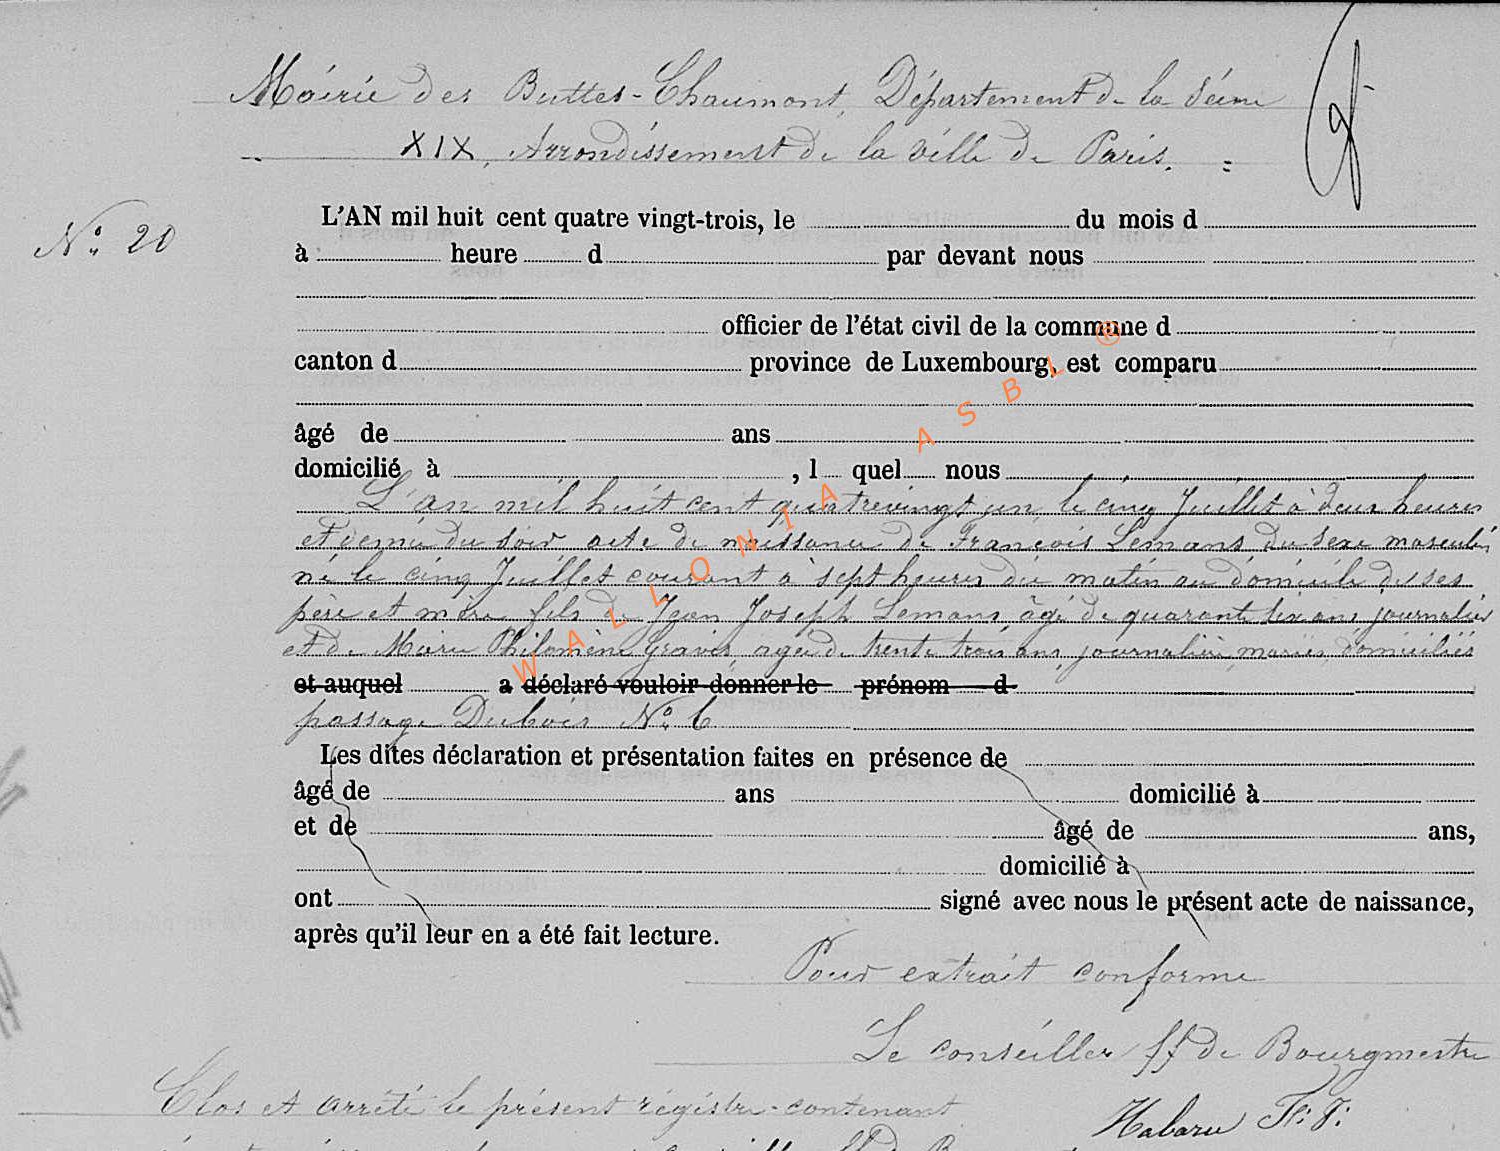 Mairie des Buttes-Chaumont, Département de la Seine
XIX, Arrondissement de la ville de Paris.
N° 20
L'AN mil huit cent quatre vingt-trois, le du mois d
à heure d par devant nous
officier de l'état civil de la commune d
canton d province de Luxembourg, est comparu
âgé de ans
domicilié à , l quel nous
L'an mil huit cent quatrevingt un, le cinq Juillet à deux heures
et demie du soir acte de naissance de François Lemans, du sexe masculin
né le cinq Juillet courant à sept heures du matin au domicile de ses
père et mère fils de Jean Joseph Lemans, âgé de quarante six ans, journalier
et de Marie Philomène Gravis, agée de trente trois ans, journalière, mariés, domiciliés
et auquel a déclaré vouloir donner le prénom d
passage Dubois N° 6
Les dites déclaration et présentation faites en présence de
âgé de ans domicilié à
et de âgé de ans,
domicilié à
ont signé avec nous le présent acte de naissance,
après qu'il leur en a été fait lecture.
Pour extrait conforme
Le conseiller ff de Bourgmestre
Habaru
Clos et arrêté le présent régistre contenant
WALLONIA ASBL ®